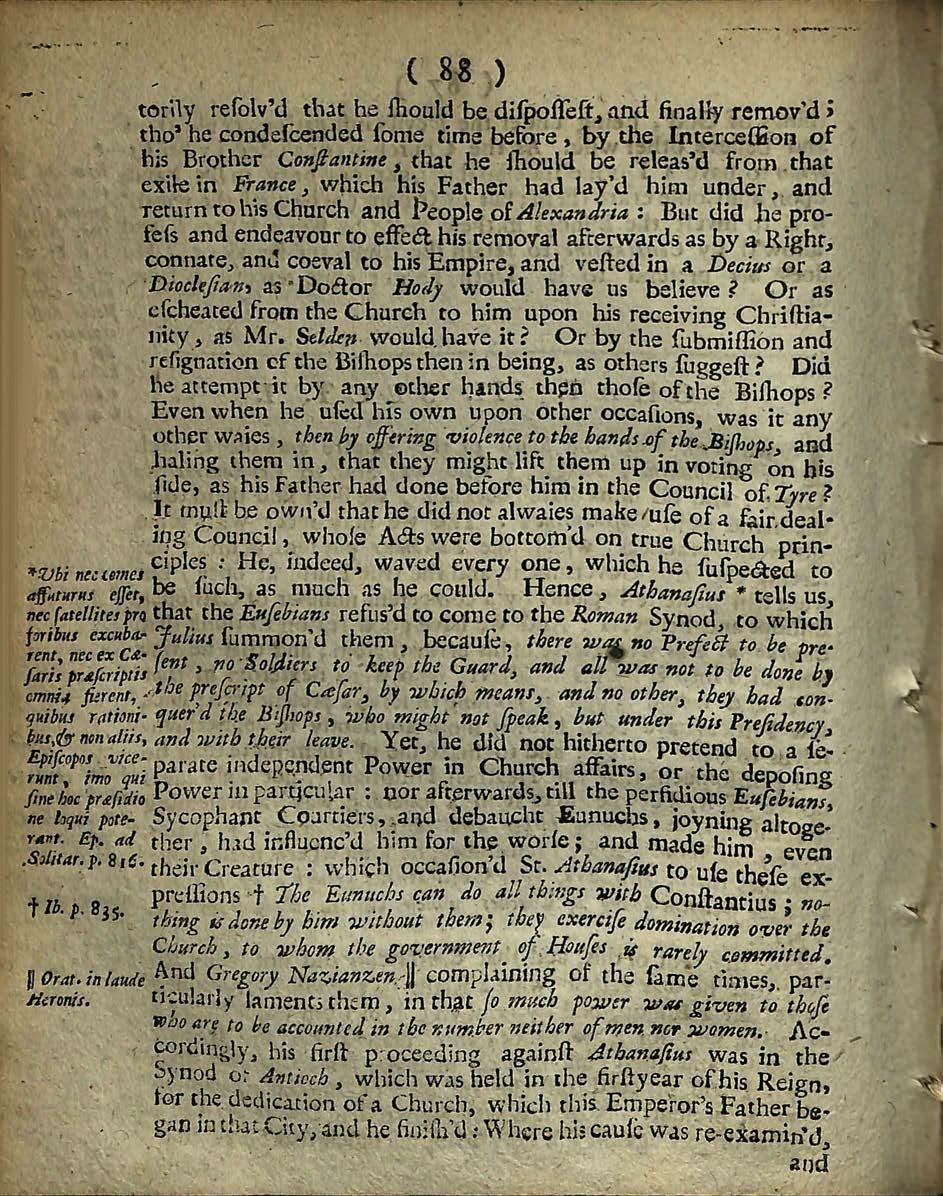 ( 88 )
torily reſolv'd that he ſhould be diſpoſſeſt, and finally remov'd;
tho' he condeſcended ſome time before, by the Interceſſion of
his Brother Conſtantine, that he ſhould be releas'd from that
exile in France, which his Father had lay'd him under, and
return to his Church and People of Alexandria: But did he pro-
feſs and endeavour to effect his removal afterwards as by a Right,
connate, and coeval to his Empire, and veſted in a Decius or a
Diocleſian, as Doctor Hody would have us believe? Or as
eſcheated from the Church to him upon his receiving Chriſtia-
nity, as Mr. Selden would have it? Or by the ſubmiſſion and
reſignation of the Biſhops then in being, as others ſuggeſt? Did
he attempt it by any other hands then thoſe of the Biſhops?
Even when he uſed his own upon other occaſions, was it any
other waies, then by offering violence to the hands of the Biſhops, and
haling them in, that they might lift them up in voting on his
ſide, as his Father had done before him in the Council of Tyre?
It muſt be own'd that he did not alwaies make uſe of a fair deal-
ing Council, whoſe Acts were bottom'd on true Church prin-
ciples: He, indeed, waved every one, which he ſuſpected to
be ſuch, as much as he could. Hence, Athanaſius * tells us,
that the Euſebians refus'd to come to the Roman Synod, to which
Julius ſummon'd them, becauſe, there was no Prefect to be pre-
ſent, no Soldiers to keep the Guard, and all was not to be done by
the preſcript of Cæſar, by which means, and no other, they had con-
quer'd the Biſhops, who might not ſpeak, but under this Preſidency,
and with their leave. Yet, he did not hitherto pretend to a ſe-
parate independent Power in Church affairs, or the depoſing
Power in particular: nor afterwards, till the perfidious Euſebians,
Sycophant Courtiers, and debaucht Eunuchs, joyning altoge-
ther, had influenc'd him for the worſe; and made him, even
their Creature: which occaſion'd St. Athanaſius to uſe theſe ex-
preſſions † The Eunuchs can do all things with Conſtantius; no-
thing is done by him without them; they exerciſe domination over the
Church, to whom the government of Houſes is rarely committed.
And Gregory Nazianzen || complaining of the ſame times, par-
ticularly laments them, in that ſo much power was given to thoſe
who are to be accounted in the number neither of men nor women. Ac-
cordingly, his firſt proceeding againſt Athanaſius was in the
Synod of Antioch, which was held in the firſt year of his Reign,
for the dedication of a Church, which this Emperor's Father be-
gan in that City, and he finiſh'd: Where his cauſe was re-examin'd,
and
*Ubi nec comes
affuturus eſſet,
nec ſatellites pro
foribus excuba-
rent, nec ex Cæ-
ſaris præſcriptis
omnia fierent,
quibus rationi-
bus, & non aliis,
Epiſcopos vice-
runt, imo qui
ſine hoc præſidio
ne loqui pote-
rant. Ep. ad
Solitar. p. 816.
† Ib. p. 835.
|| Orat. in laude
Heronis.